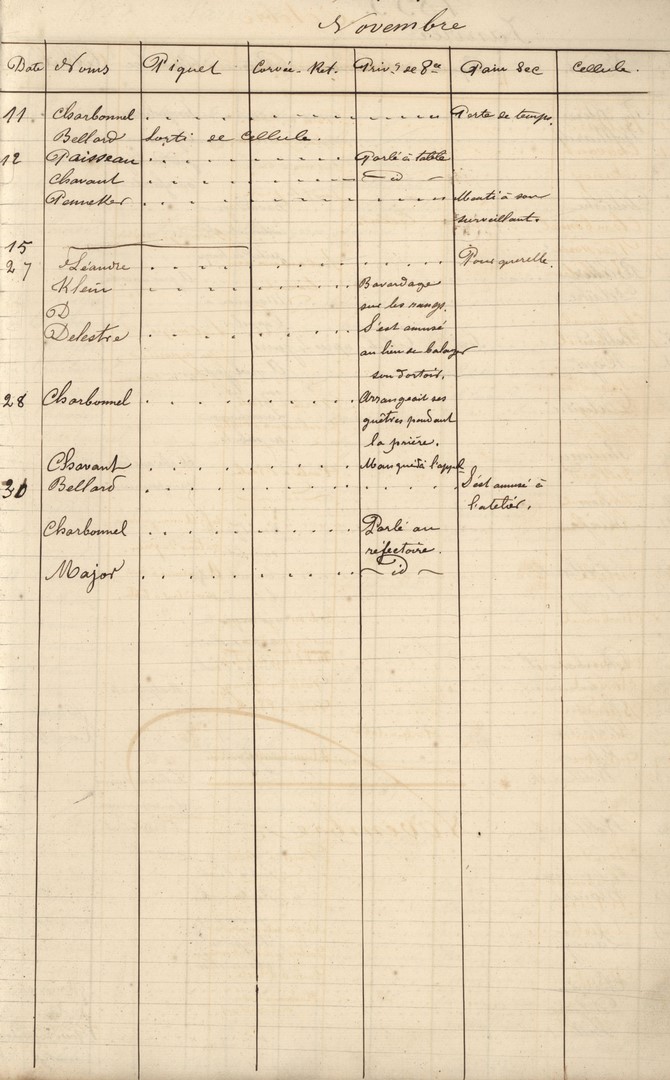 Novembre
Date Noms Piquet Corvée-Ret. Priv.on de 8ce Pain Sec Cellule.
11 Charbonnel . . . . . . . . . . . Perte de temps.
Bellard Sorti de cellule.
12 Paisseau . . . . . . . . Parlé à table
Chavant . . . . . . . . — id —
Pennetier . . . . . . . . . . . Menti à son
surveillant.
15
27 Léandre . . . . . . . . . . . Pour querelle.
Klein . . . . . . . . Bavardage
sur les rangs.
D
Delestre . . . . . . . . S'est amusé
au lieu de balayer
son dortoir.
28 Charbonnel . . . . . . . . Arrangeait ses
guêtres pendant
la prière.
Chavant . . . . . . . . Manqué à l'appel
30 Bellard . . . . . . . . . . . S'est amusé à
l'atelier.
Charbonnel . . . . . . . . Parlé au
réfectoire.
Major . . . . . . . . — id —